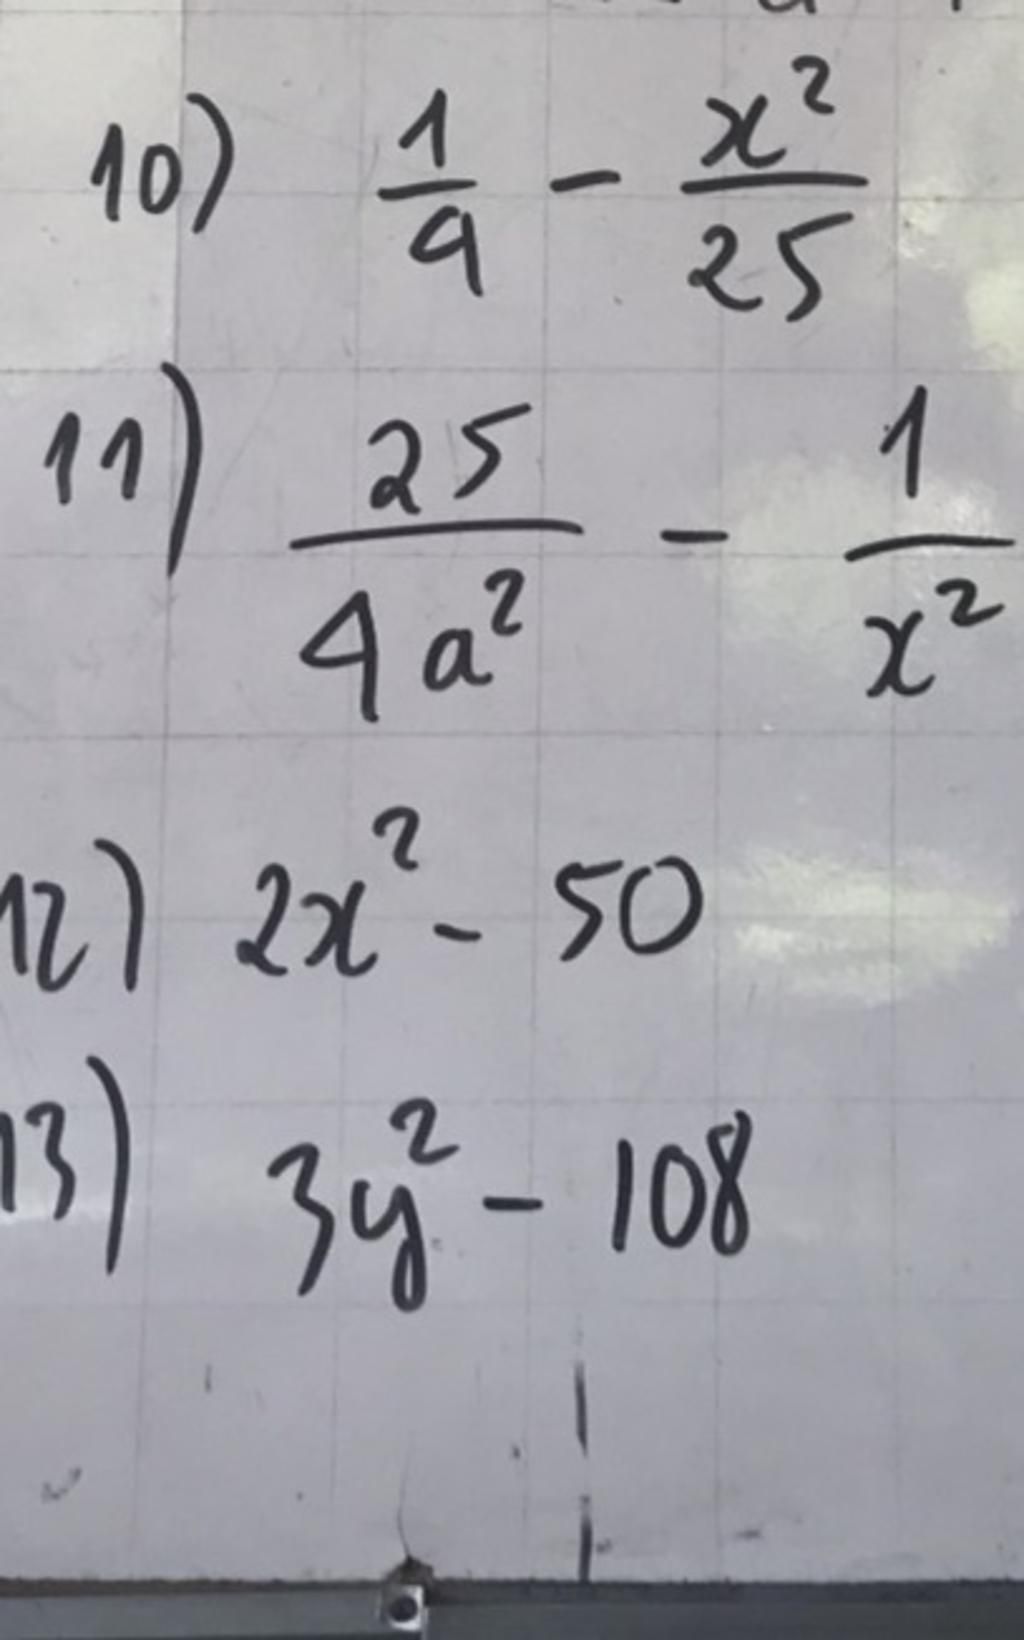 10) 1/4 - x²/25
11) 25/4a² - 1/x²
12) 2x² - 50
13) 3y² - 108